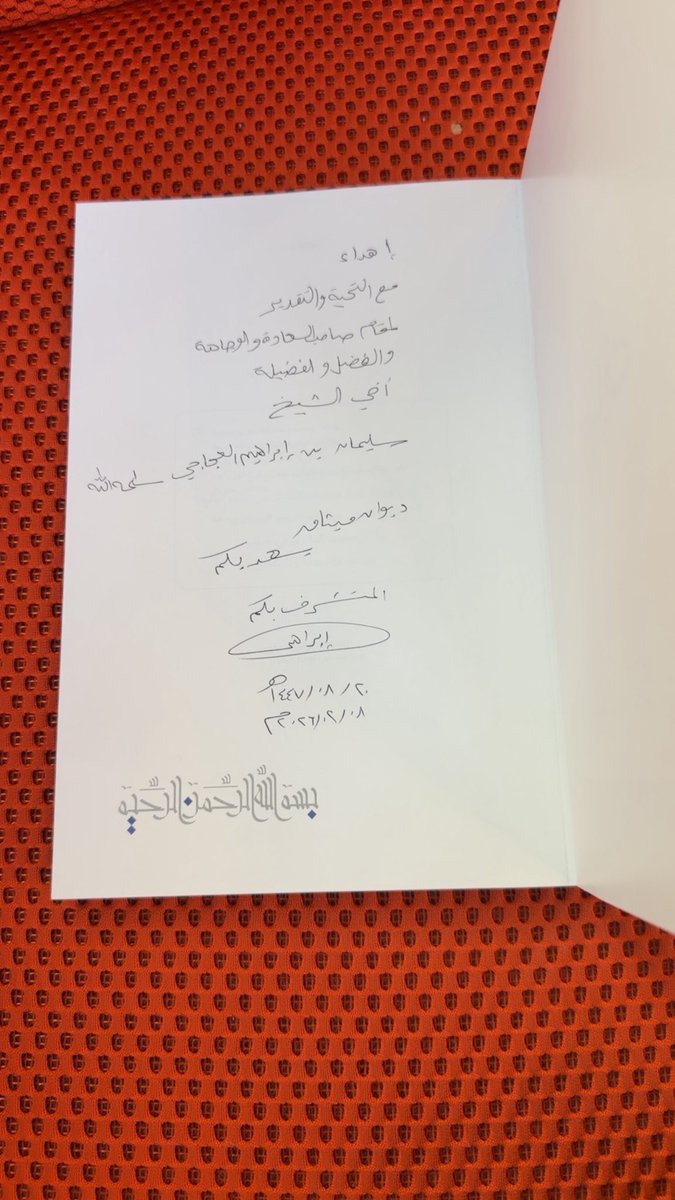 إهداء
مع التحية والتقدير
لمقام صاحب السعادة والوجاهة
والفضل والفضيلة
أخي الشيخ
سليمان بن إبراهيم العجاجي سلمه الله
ديوان ميثاق
يهديكم
المتشرف بكم
إبراهيم
٢٠/٠٨/١٤٤٧هـ
٠٨/٠٢/٢٠٢٦م
بسم الله الرحمن الرحيم